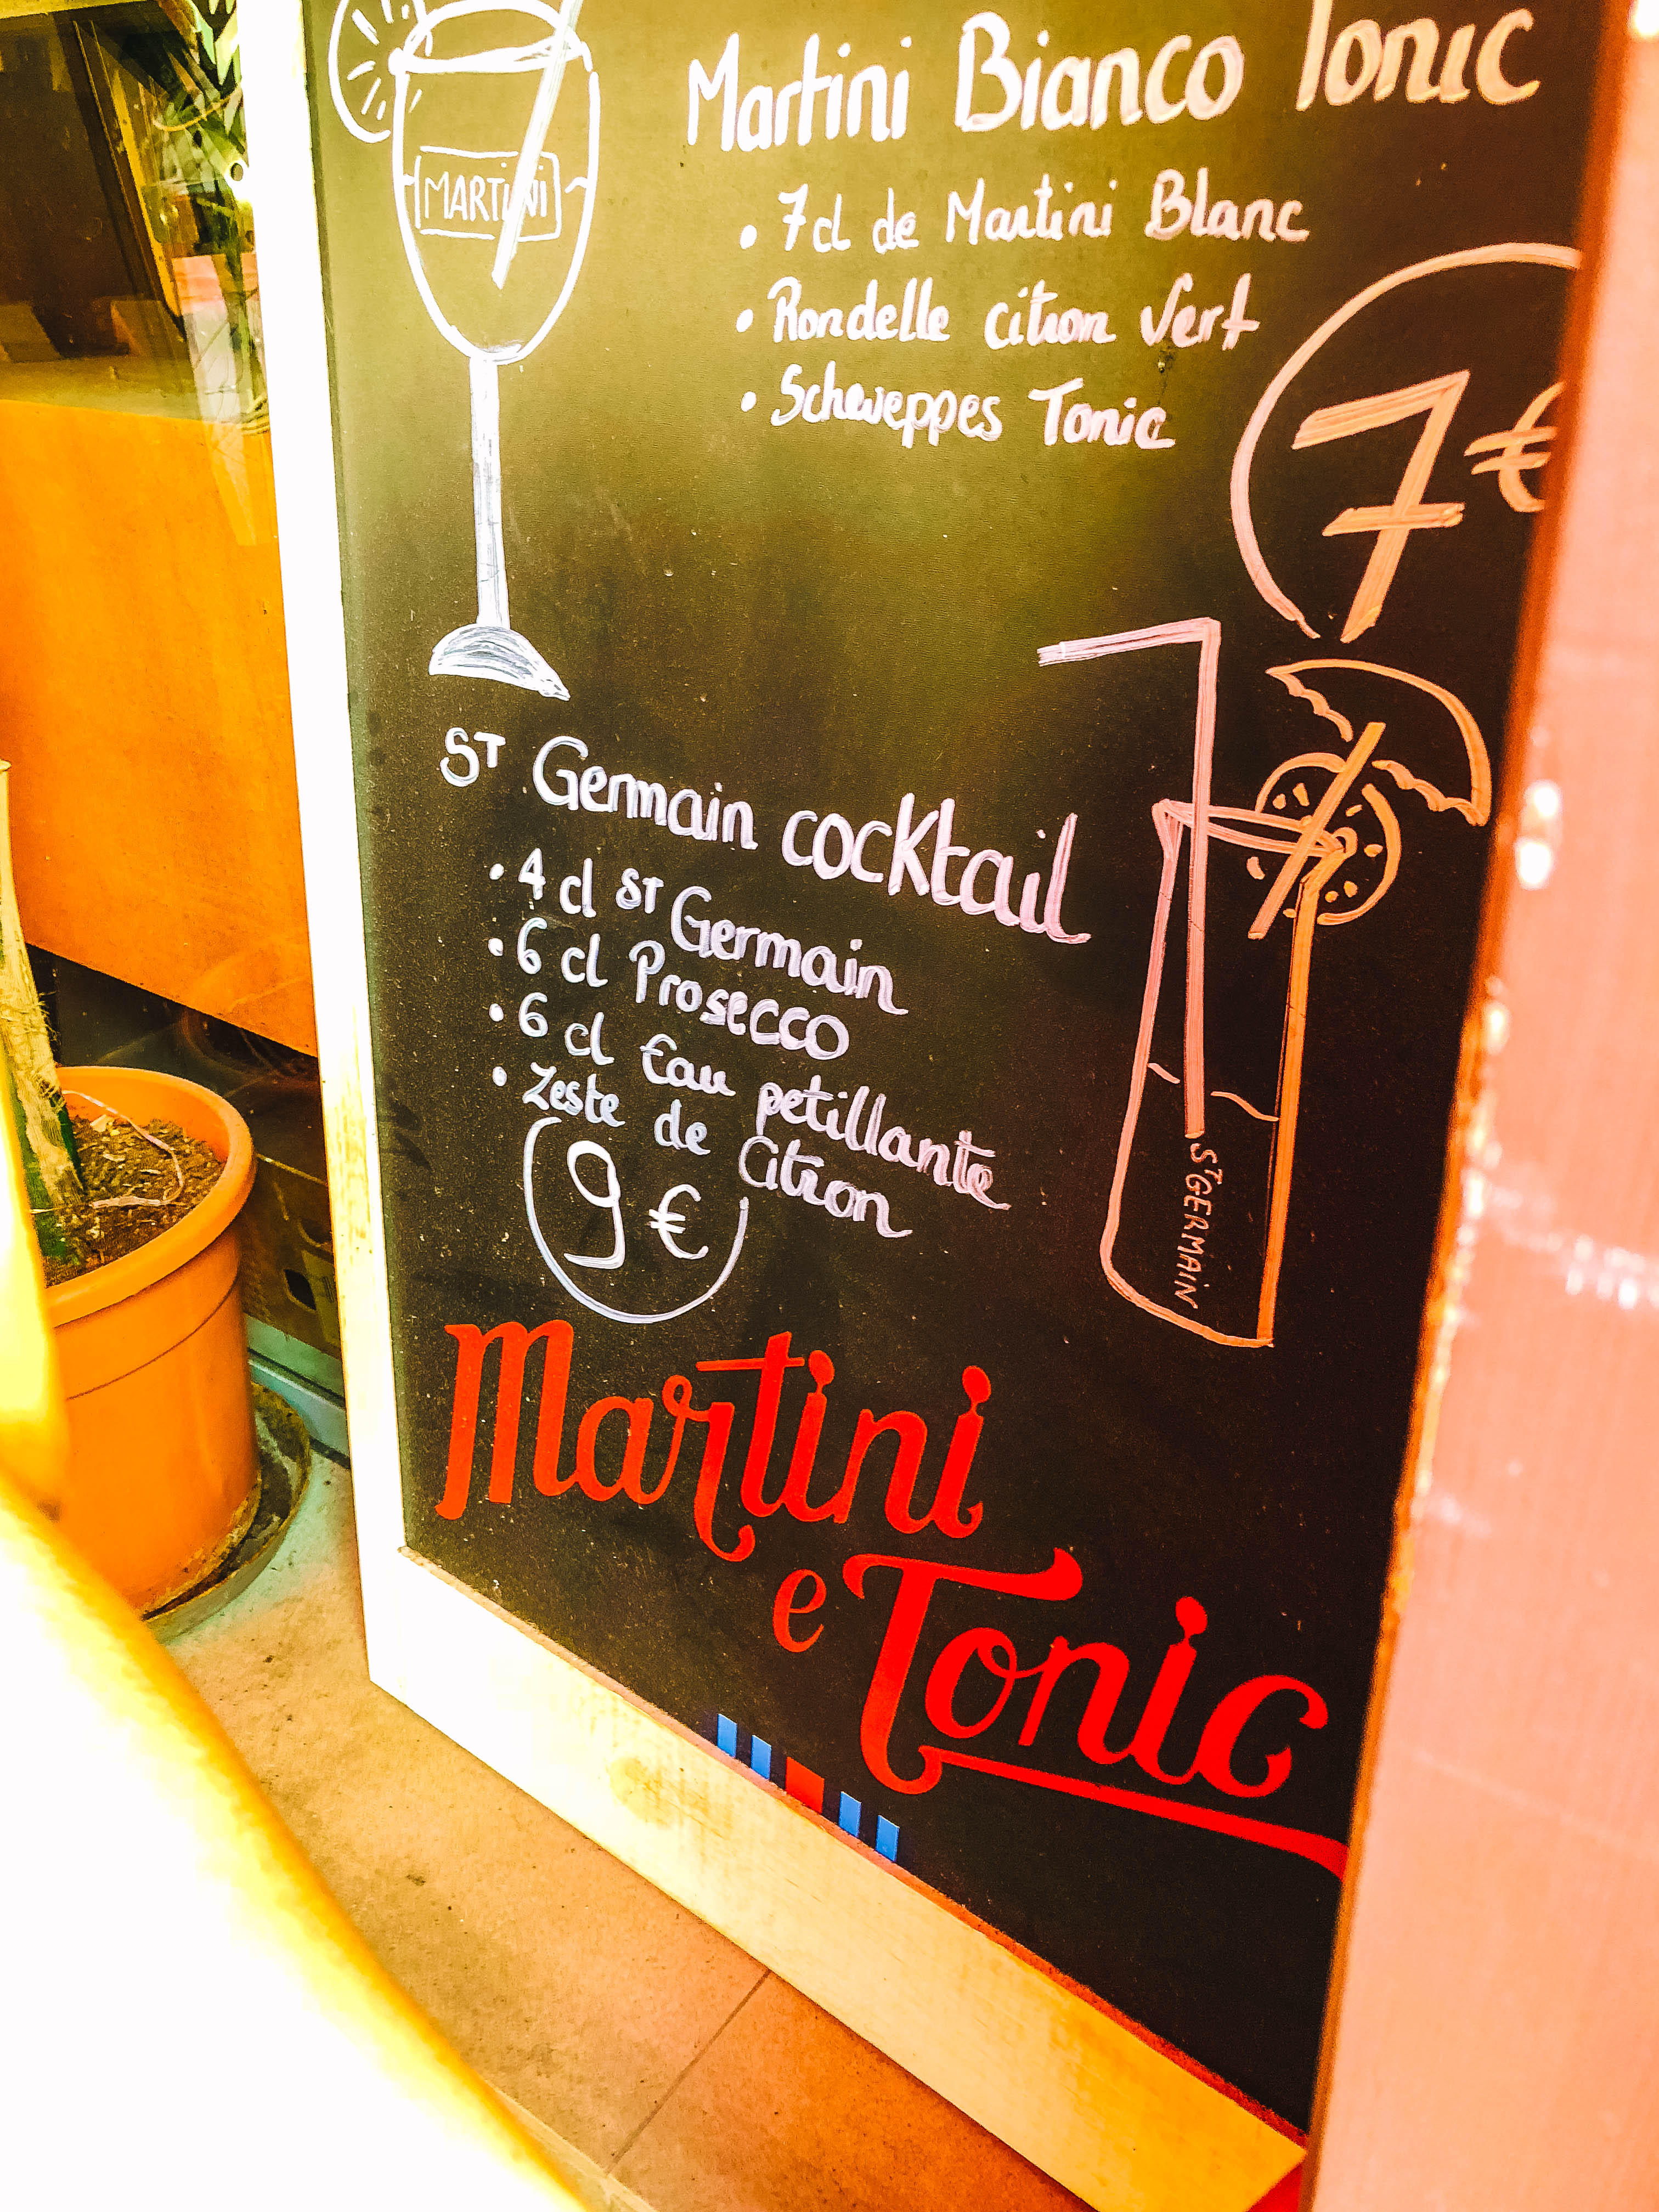 Martini Bianco Tonic
MARTINI
• 7cl de Martini Blanc
• Rondelle citron Vert
• Schweppes Tonic
7€
ST Germain cocktail
• 4 cl ST Germain
• 6 cl Prosecco
• 6 cl Eau petillante
• Zeste de Citron
9€
ST GERMAIN
Martini
e Tonic